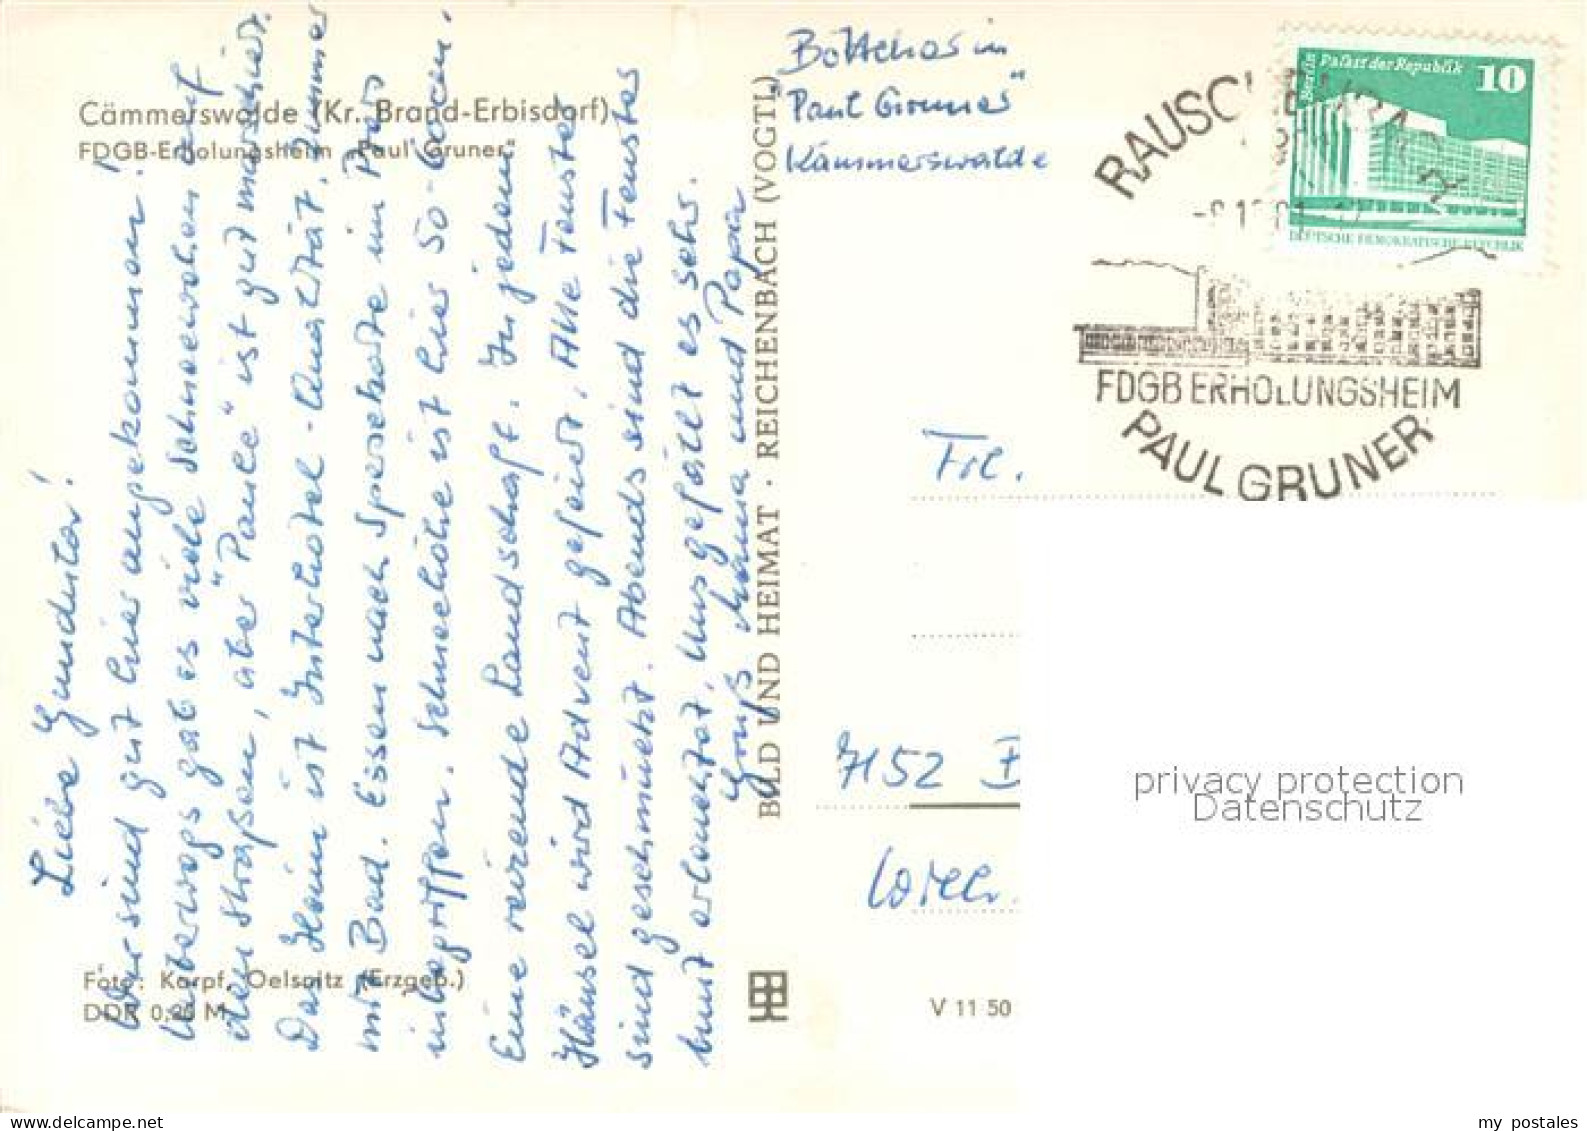 Cämmerswalde (Kr. Brand-Erbisdorf)
FDGB-Erholungsheim „Paul Gruner"
Liebe Gundula!
Wir sind gut hier angekommen.
Unterwegs gab es viele Schneewehen auf
den Straßen, aber "Paule" ist gut marschiert.
Das Heim ist Interhotel-Qualität. Zimmer
mit Bad. Essen nach Speisekarte im Preis
inbegriffen. Schneehöhe ist hier 50-60 cm.
Eine reizende Landschaft. In jedem
Häusel wird Advent gefeiert. Alle Fenster
sind geschmückt. Abends sind die Fenster
bunt erleuchtet. Uns gefällt es sehr.
Gruß Mama und Papa
Foto: Karpf, Oelsnitz (Erzgeb.)
DDR 0,20 M
BILD UND HEIMAT · REICHENBACH (VOGTL)
V 11 50
Böttcher in
"Paul Gruner"
Kämmerswalde
Berlin Palast der Republik
10
DEUTSCHE DEMOKRATISCHE REPUBLIK
FDGB ERHOLUNGSHEIM
PAUL GRUNER
Frl.
7152
privacy protection
Datenschutz
www.delcampe.net
my postales